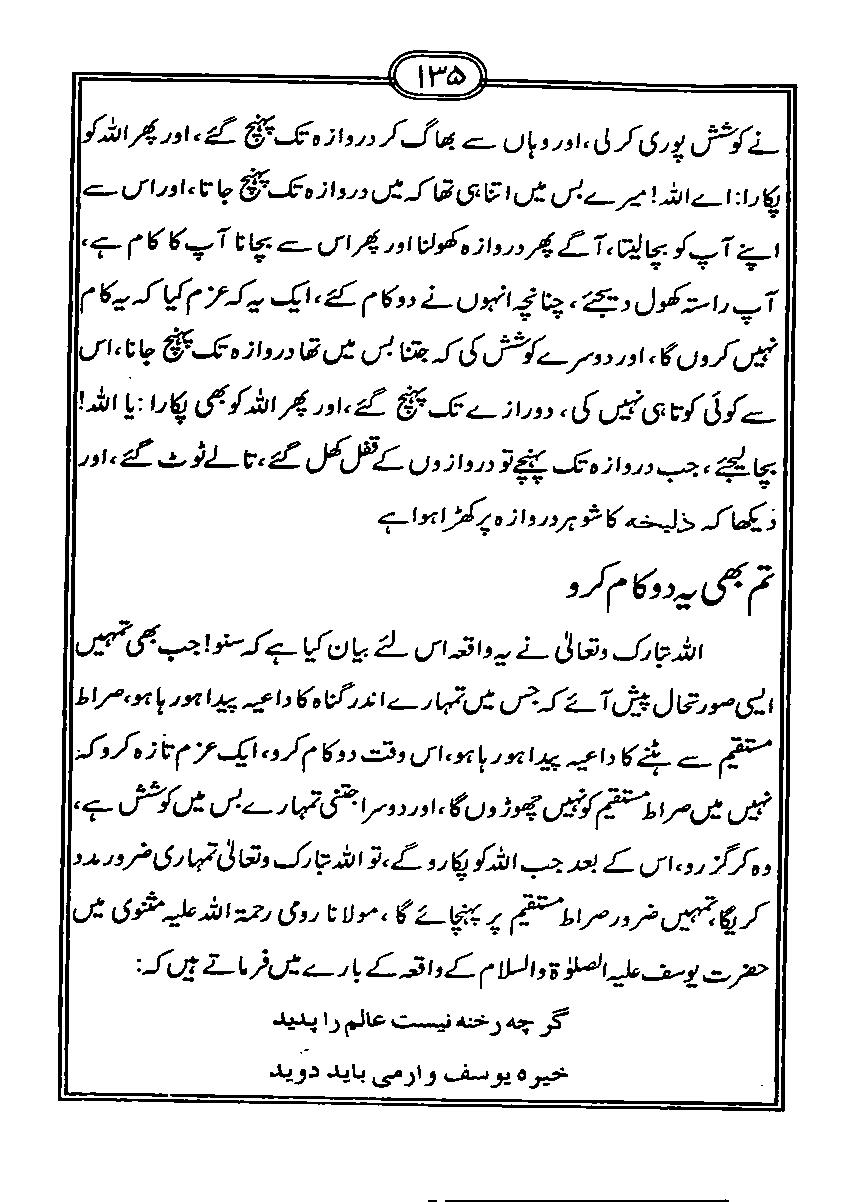 ۱۳۵
نے کوشش پوری کر لی، اور وہاں سے بھاگ کر دروازہ تک پہنچ گئے، اور پھر اللہ کو
پکارا: اے اللہ! میرے بس میں اتنا ہی تھا کہ میں دروازہ تک پہنچ جاتا، اور اس سے
اپنے آپ کو بچا لیتا، آگے پھر دروازہ کھولنا اور پھر اس سے بچانا آپ کا کام ہے،
آپ راستہ کھول دیجئے، چنانچہ انہوں نے دو کام کئے، ایک یہ کہ عزم کیا کہ یہ کام
نہیں کروں گا، اور دوسرے کوشش کی کہ جتنا بس میں تھا دروازہ تک پہنچ جانا، اس
سے کوئی کوتاہی نہیں کی، دورازے تک پہنچ گئے، اور پھر اللہ کو بھی پکارا: یا اللہ!
بچا لیجئے، جب دروازہ تک پہنچے تو دروازوں کے قفل کھل گئے، تالے ٹوٹ گئے، اور
دیکھا کہ ذلیخہ کا شوہر دروازہ پر کھڑا ہوا ہے
تم بھی یہ دو کام کرو
اللہ تبارک وتعالیٰ نے یہ واقعہ اس لئے بیان کیا ہے کہ سنو! جب بھی تمہیں
ایسی صورتحال پیش آئے کہ جس میں تمہارے اندر گناہ کا داعیہ پیدا ہو رہا ہو، صراط
مستقیم سے ہٹنے کا داعیہ پیدا ہو رہا ہو، اس وقت دو کام کرو، ایک عزم تازہ کرو کہ
نہیں میں صراط مستقیم کو نہیں چھوڑوں گا، اور دوسرا جتنی تمہارے بس میں کوشش ہے،
وہ کر گزرو، اس کے بعد جب اللہ کو پکارو گے، تو اللہ تبارک وتعالیٰ تمہاری ضرور مدد
کریگا، تمہیں ضرور صراط مستقیم پر پہنچائے گا، مولانا رومی رحمۃ اللہ علیہ مثنوی میں
حضرت یوسف علیہ الصلوٰۃ والسلام کے واقعہ کے بارے میں فرماتے ہیں کہ:
گر چہ رخنہ نیست عالم را پدید
خیرہ یوسف وار می باید دوید